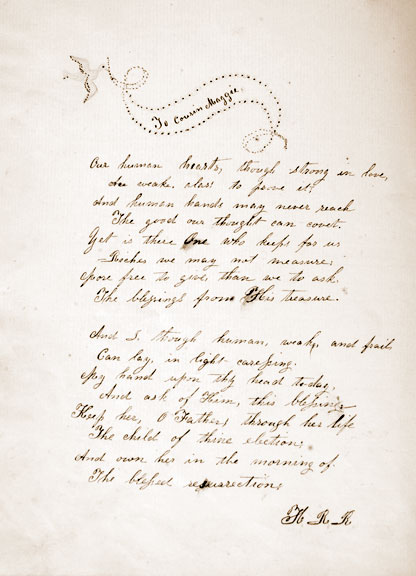 To Cousin Maggie.
Our human hearts, though strong in love,
Are weak, alas! to prove it;
And human hands may never reach
The good our thought can covet.
Yet is there One who keeps for us
Riches we may not measure;
More free to give, than we to ask
The blessings from His treasure.
And I, though human, weak, and frail
Can lay, in light caressing.
My hand upon thy head today,
And ask of Him, this blessing
Keep her, O Father, through her life
The child of thine election;
And own her in the morning of
The blessed resurrection;
H R R